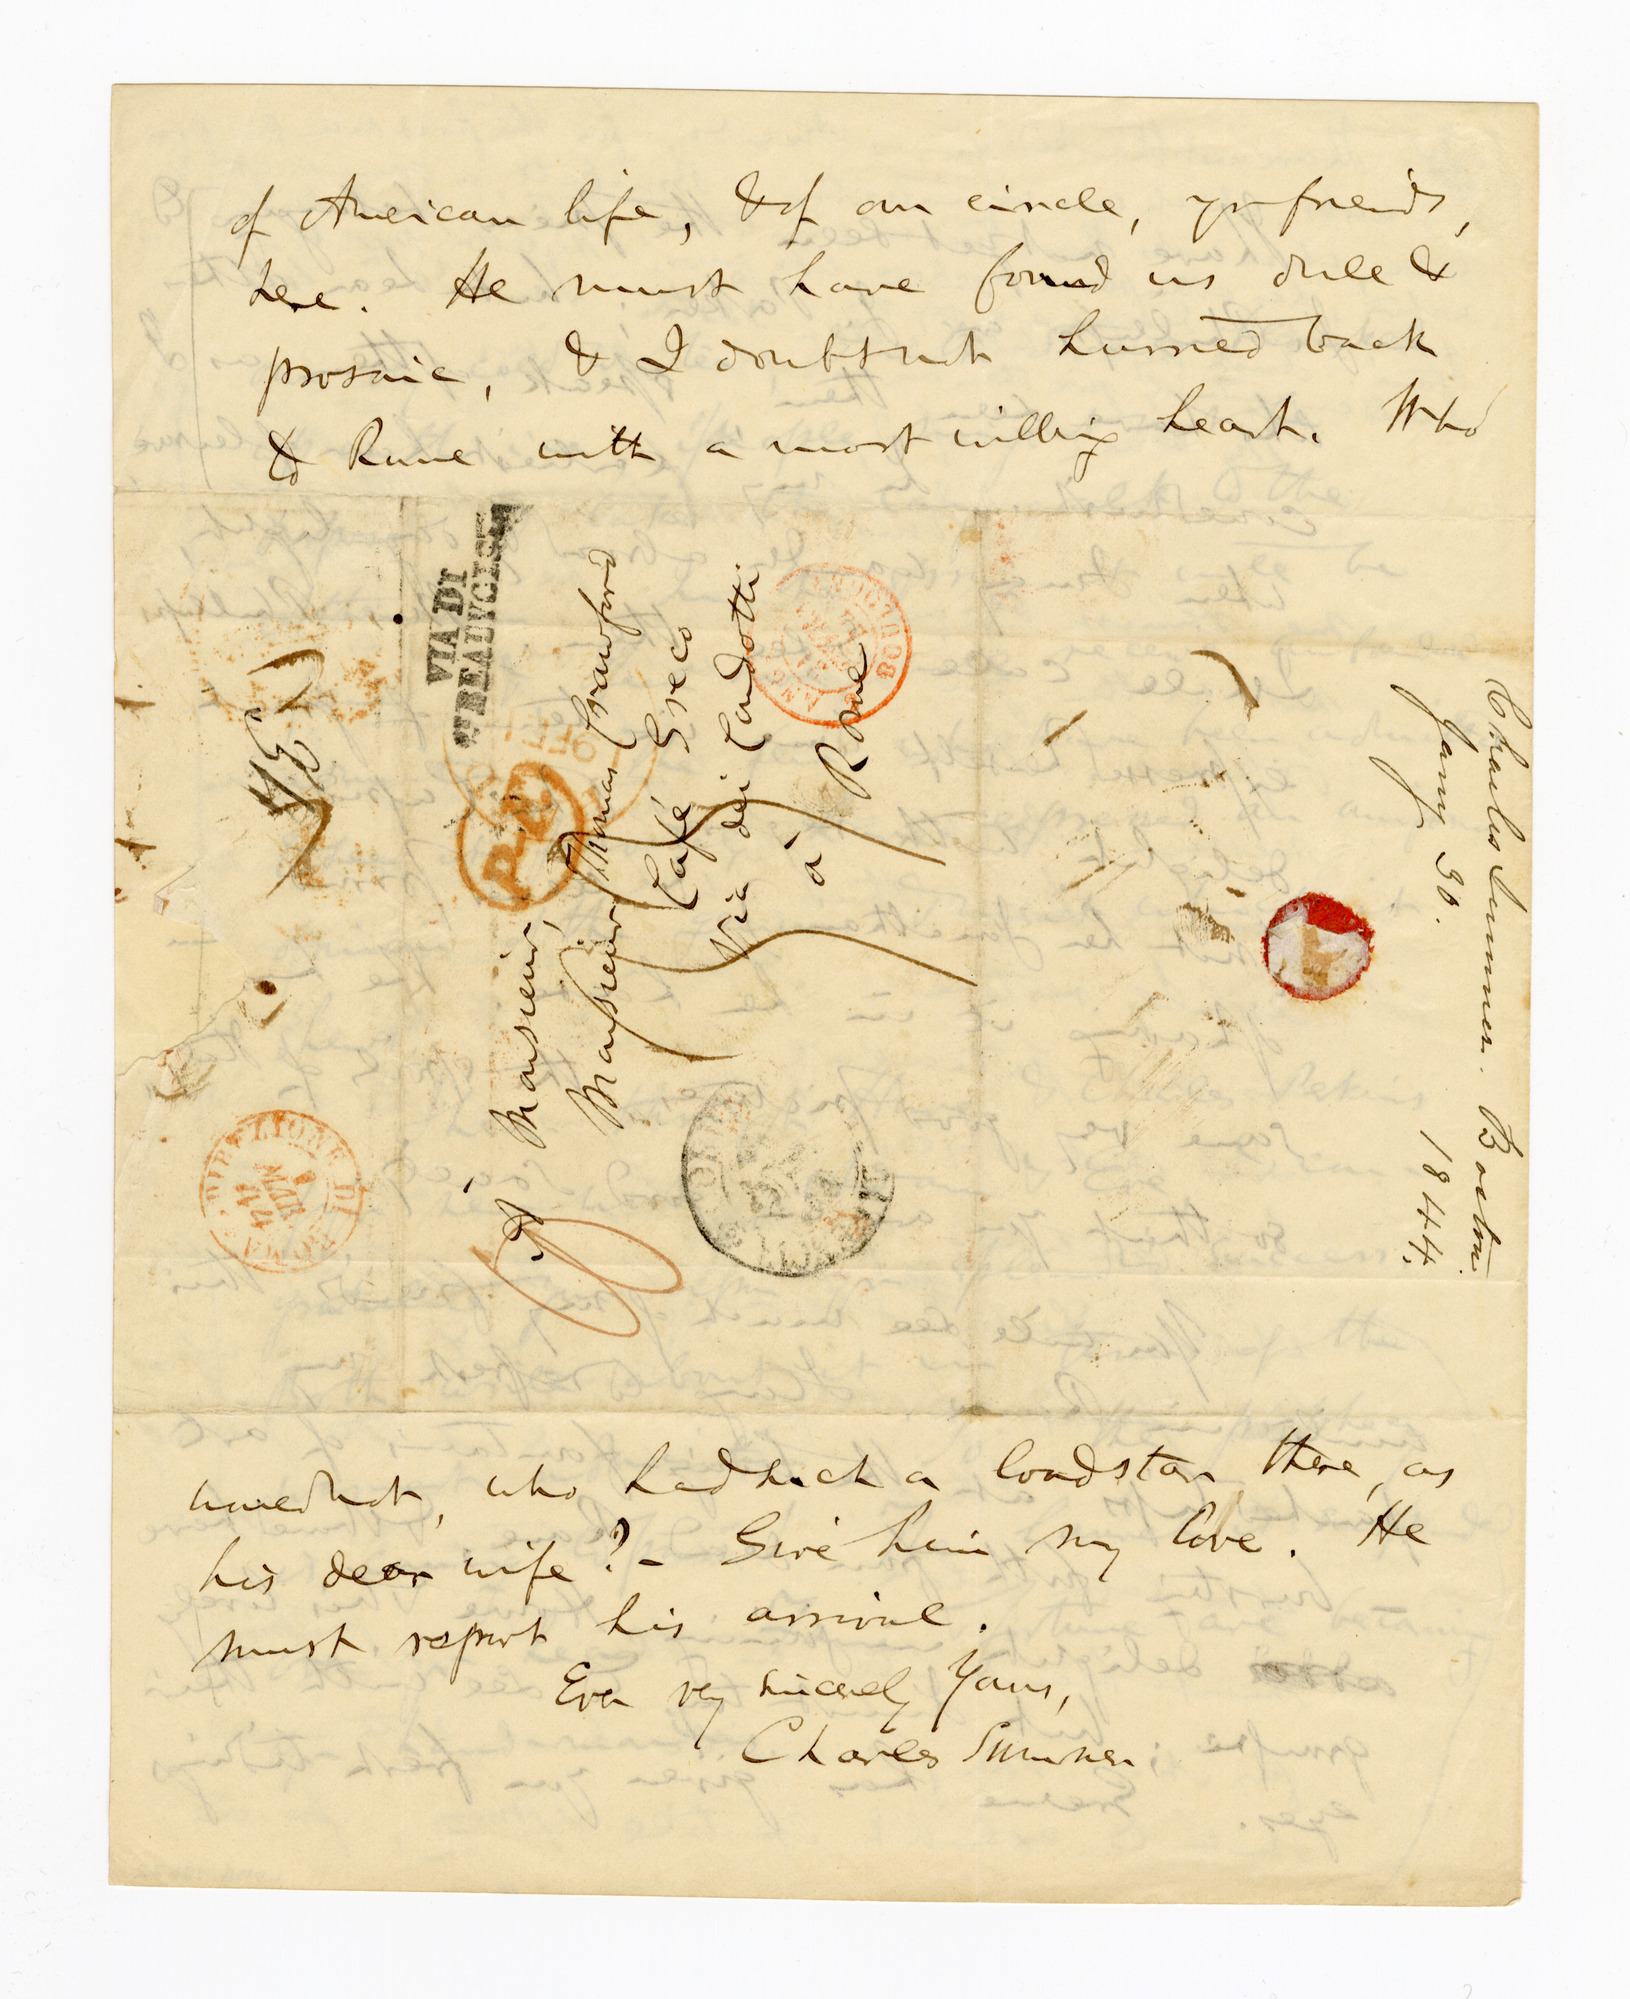 of American life, & of our circle, yr friends,
here. He must have found us dull &
prosaic, & I doubt not hurried back
to Rome with a most willing heart. Who
would not, who had such a loadstar there, as
his dear wife? - Give him my love. He
must report his arrival.
Ever very sincerely Yours,
Charles Sumner
À Monsieur,
Monsieur Thomas Crawford
Café Greco
Via dei Condotti
à Rome
VIA DI
PT. BEAUVOISIN
DIREZIONE DI ROMA
9 MAR 44
Charles Sumner. Boston.
Jany 30. 1844.